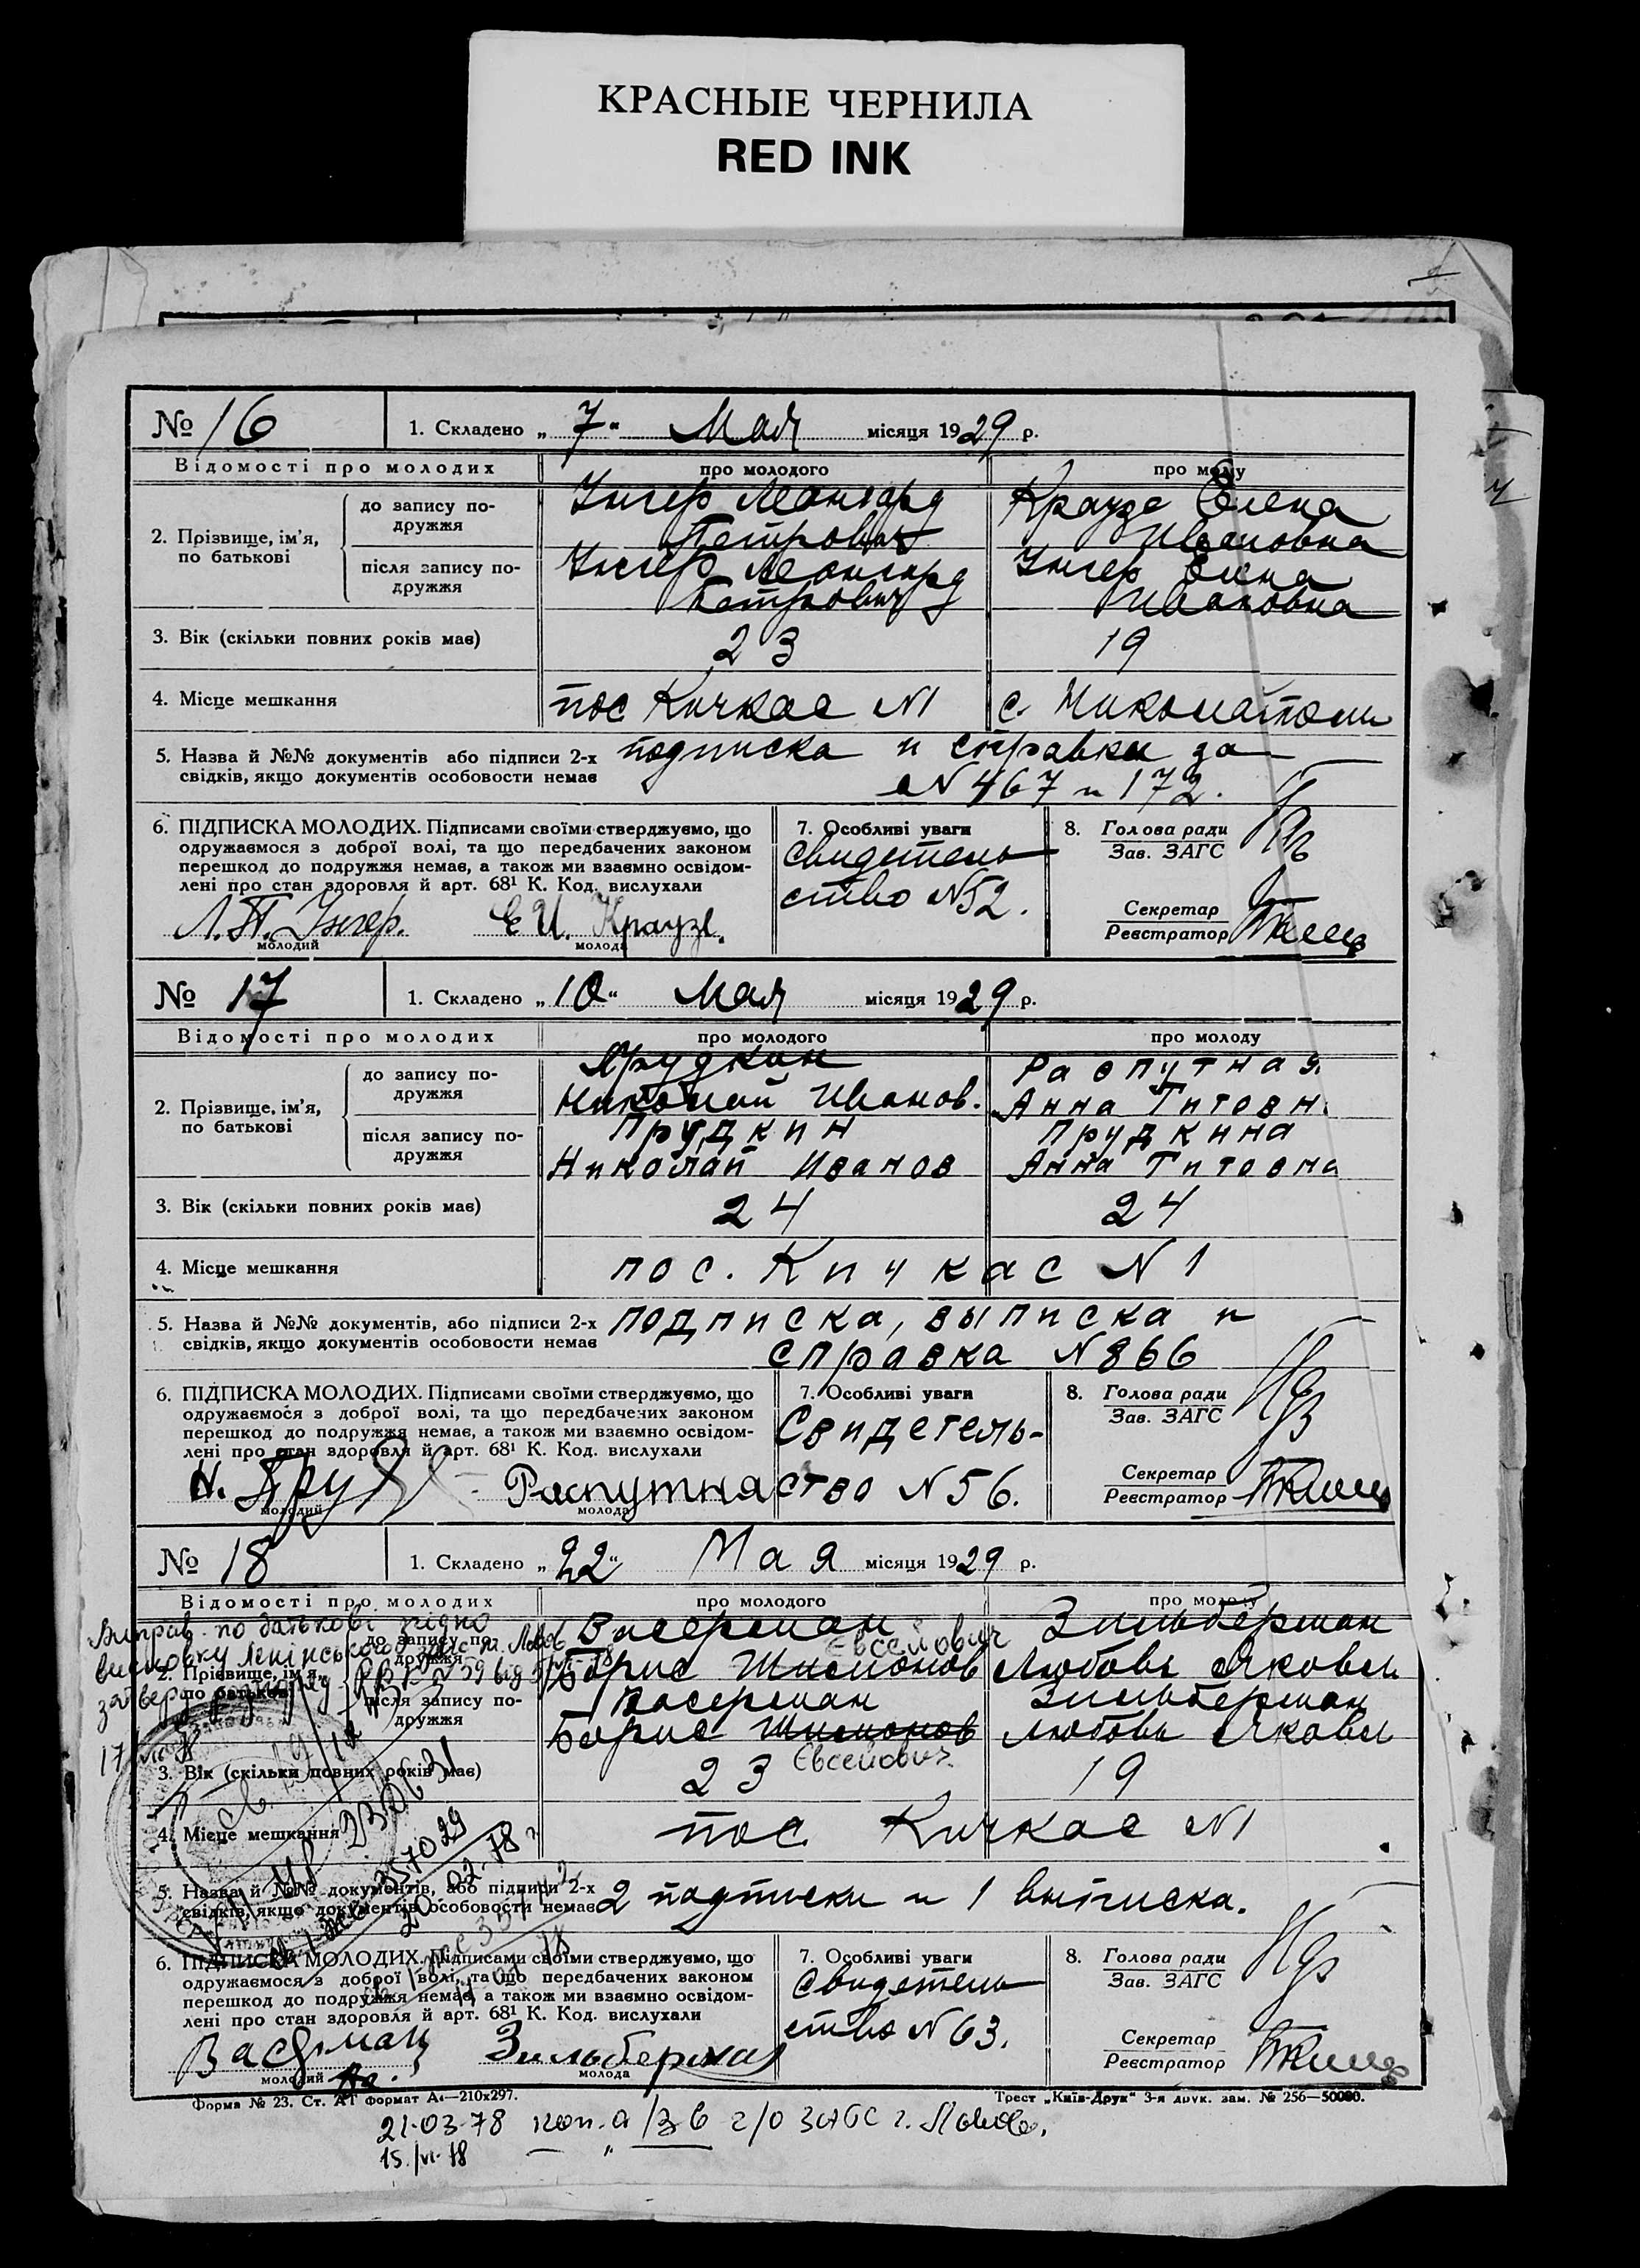 КРАСНЫЕ ЧЕРНИЛА
RED INK
№ 16
1. Складено „ 7 “ Мая місяця 1929 р.
Відомості про молодих
про молодого
про молоду
2. Прізвище, ім'я, по батькові
до запису подружжя
Унгер Леонгард
Петрович
Краузе Елена
Ивановна
після запису подружжя
Унгер Леонгард
Петрович
Унгер Елена
Ивановна
3. Вік (скільки повних років має)
23
19
4. Місце мешкання
пос Кичкас N1
с. Николайполь
5. Назва й №№ документів або підписи 2-х
свідків, якщо документів особовости немає
подписка и справки за
N 467 и 172.
6. ПІДПИСКА МОЛОДИХ. Підписами своїми стверджуємо, що
одружаємося з доброї волі, та що передбачених законом
перешкод до подружжя немає, а також ми взаємно освідом-
лені про стан здоров'я й арт. 68¹ К. Код. вислухали
Л.П. Унгер.
молодий
Е И. Краузе.
молода
7. Особливі уваги
Свидетель
ство N52.
8. Голова ради
Зав. ЗАГС
Секретар
Реєстратор
№ 17
1. Складено „ 10 “ Мая місяця 1929 р.
Відомості про молодих
про молодого
про молоду
2. Прізвище, ім'я,
по батькові
до запису по-
дружжя
Прудкин
Николай Иванов.
Распутная
Анна Титовн.
після запису по-
дружжя
Прудкин
Николай Иванов
Прудкина
Анна Титовна
3. Вік (скільки повних років має)
24
24
4. Місце мешкання
пос. Кичкас N1
5. Назва й №№ документів, або підписи 2-х
свідків, якщо документів особовости немає
подписка, выписка и
справка N866
6. ПІДПИСКА МОЛОДИХ. Підписами своїми стверджуємо, що
одружаємося з доброї волі, та що передбачених законом
перешкод до подружжя немає, а також ми взаємно освідом-
лені про стан здоровля й арт. 68¹ К. Код. вислухали
Н. Пруд
молодий
Распутная
молода
7. Особливі уваги
Свидетель-
ство N56.
8. Голова ради
Зав. ЗАГС
Секретар
Реєстратор
№ 18
1. Складено „ 22 “ Мая місяця 1929 р.
Відомості про молодих
про молодого
про молоду
Виправ. по батькові згідно
висновку Ленінського
2. Прізвище, ім'я,
по батькові
до запису по-
дружжя
Васерман
Євсейович
Борис Шисмонов
Зильберман
Любовь Яковл.
після запису по-
дружжя
Васерман
Борис Шисмонов
Євсейович
Зильберман
Любовь Яковл
3. Вік (скільки повних років має)
23
19
4. Місце мешкання
пос. Кичкас N1
357029
20.02.78
5. Назва й №№ документів, або підписи 2-х
свідків, якщо документів особовости немає
2 подписки и 1 выписка.
6. ПІДПИСКА МОЛОДИХ. Підписами своїми стверджуємо, що
одружаємося з доброї волі, та що передбачених законом
перешкод до подружжя немає, а також ми взаємно освідом-
лені про стан здоров'я й арт. 68¹ К. Код. вислухали
Васерман
молодий
Зильберман
молода
7. Особливі уваги
Свидетель
ство N63.
8. Голова ради
Зав. ЗАГС
Секретар
Реєстратор
Форма № 23. Ст. АТ формат А4—210х297.
Трест „Київ-Друк“ 3-я друк. зам. № 256—50000.
21.03.78 коп. а/з в г/о ЗАГС г. Львов.
15./VI-78 — " —